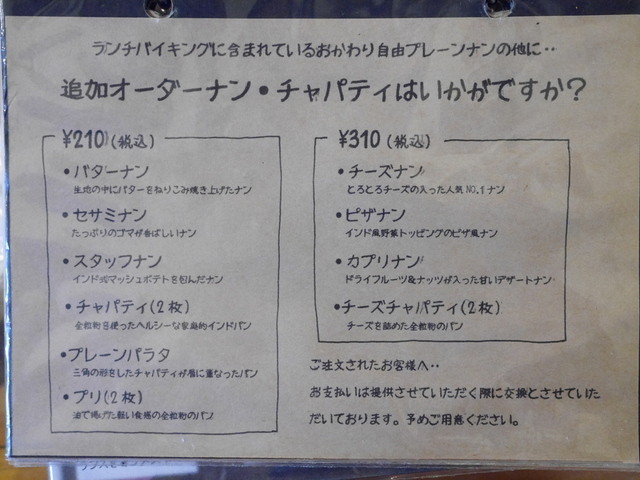 ランチバイキングに含まれているおかわり自由プレーンナンの他に‥
追加オーダーナン・チャパティはいかがですか?
¥210(税込)
・バターナン
生地の中にバターをねりこみ焼き上げたナン
・セサミナン
たっぷりのゴマが香ばしいナン
・スタッフナン
インド式マッシュポテトを包んだナン
・チャパティ(2枚)
全粒粉を使ったヘルシーな家庭的インドパン
・プレーンパラタ
三角の形をしたチャパティが層に重なったパン
・プリ(2枚)
油で揚げた軽い食感の全粒粉のパン
¥310(税込)
・チーズナン
とろとろチーズの入った人気NO.1ナン
・ピザナン
インド風野菜トッピングのピザ風ナン
・カプリナン
ドライフルーツ&ナッツが入った甘いデザートナン
・チーズチャパティ(2枚)
チーズを詰めた全粒粉のパン
ご注文されたお客様へ‥
お支払いは提供させていただく際に交換とさせていた
だいております。予めご用意ください。